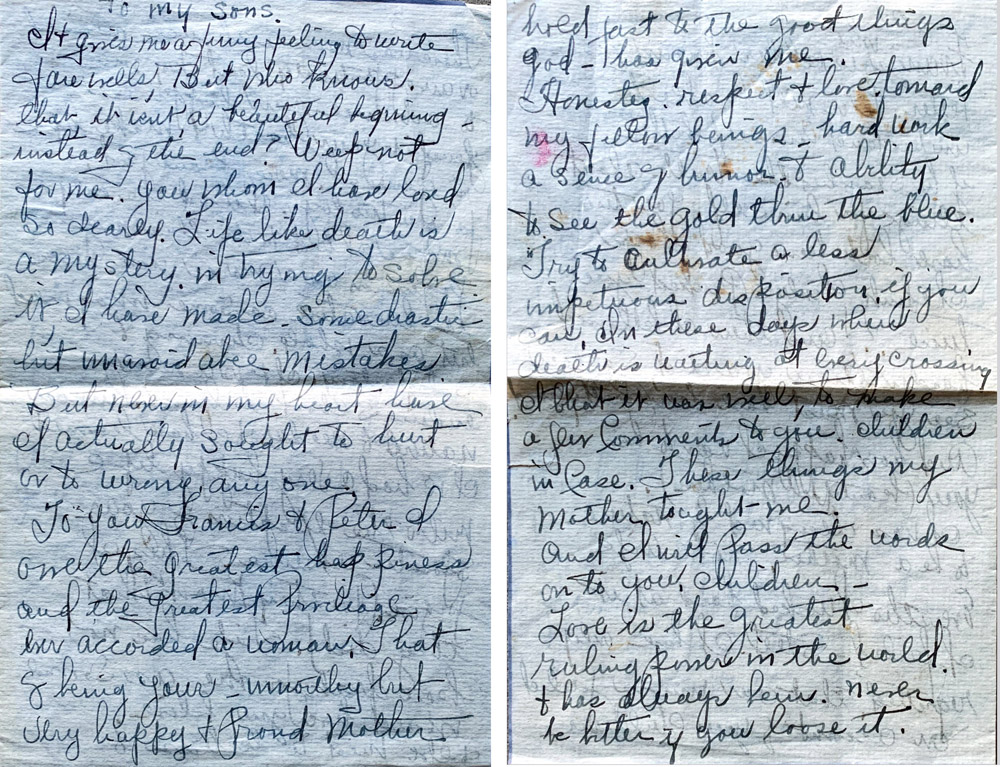 To my Sons.
It gives me a funny feeling to write
farewells, But who knows.
that it isn't a beautiful begining -
instead of the end? Weep not
for me. you whom I have loved
So dearly. Life like death is
a mystery. in trying to solve
it I have made. Some drastic
but unavoidable mistakes
But never in my heart have
I actually sought to hurt
or to wrong any one.
To you Francis & Peter I
owe the greatest happiness
and the greatest privilage
ever accorded a woman. That
of being your - unworthy but
very happy & proud Mother
hold fast to the good things
god - has given me.
Honestey. respect & love. toward
my fellow beings - hard work
a sence of humor. & ability
to See the gold thru the blue.
Try to cultivate a less
impetuous disposition. if you
can. In these days when
death is waiting at every crossing
I that it was well, to make
a few Comments to you. children
in Case. These things my
Mother tought-me.
and I will pass the words
on to you, children -
Love is the greatest
ruling power in the world.
& has always been. never
be bitter if you loose it.